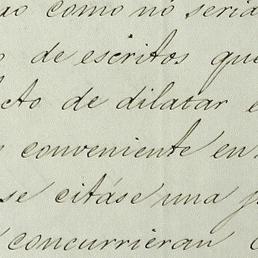 como no seria
de escritos que
de dilatar
conveniente en
se citáse una
concurrieran